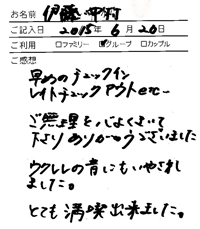 お名前 伊藤 中村
ご記入日 2015年 6月 20日
ご利用 □ファミリー ☑グループ □カップル
ご感想
早めのチェックイン
レイトチェックアウトetc…
ご無理を心よくきいて
下さりありがとうございました
ウクレレの音にもいやされ
ました。
とても満喫出来ました。